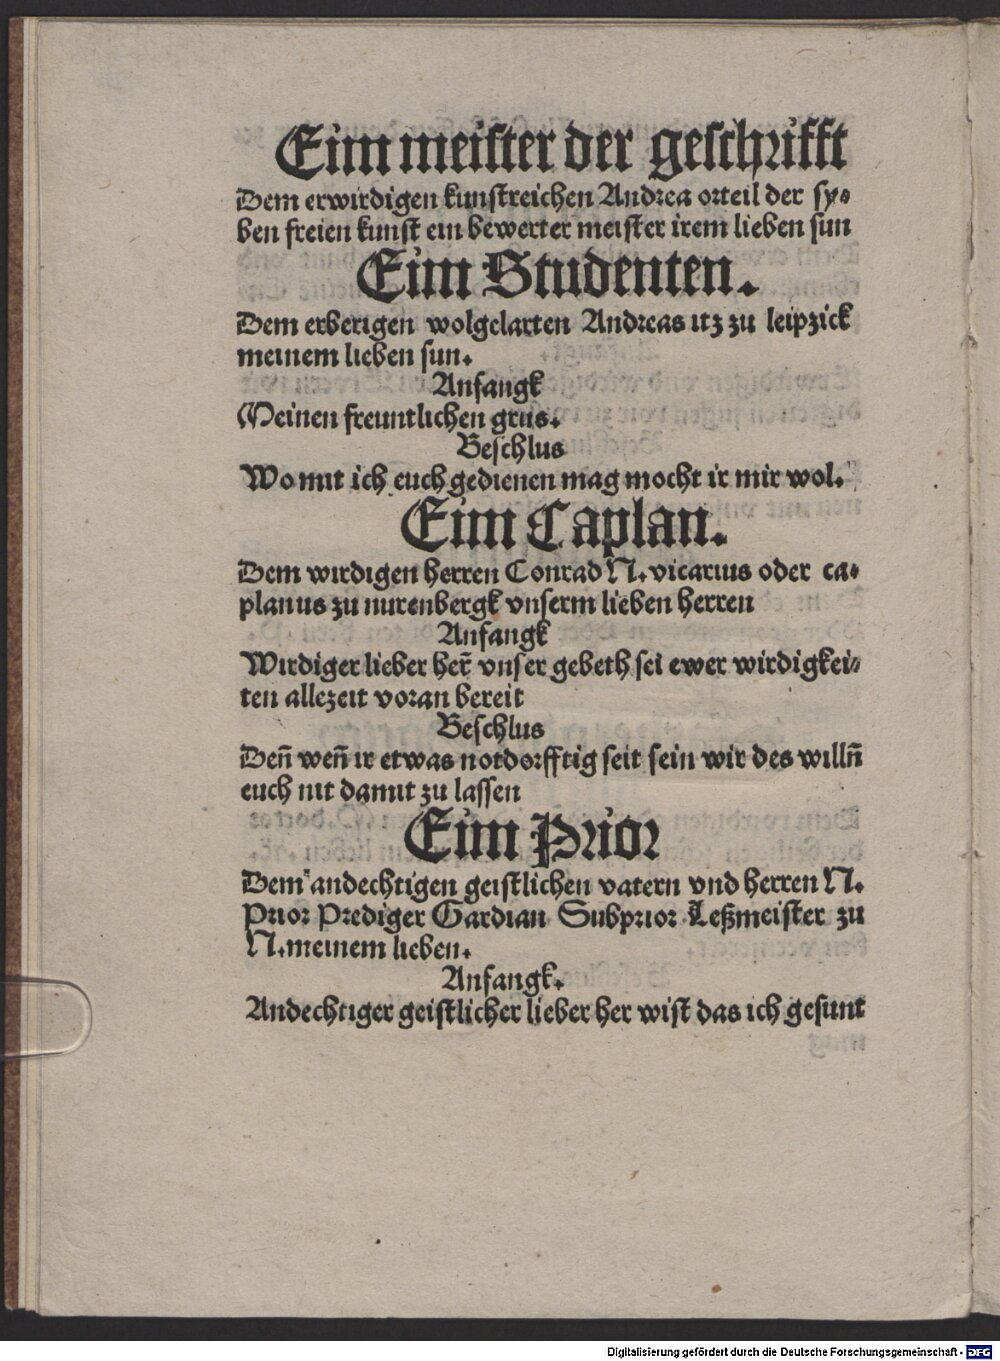 Eim meister der geschrifft
Dem erwirdigen kunstreichen Andrea orteil der sy⸗
ben freien kunst ein bewerter meister irem lieben sun
Eim Studenten.
Dem erberigen wolgelarten Andreas itz zu leipzick
meinem lieben sun.
Anfangk
Meinen freuntlichen grus.
Beschlus
Wo mit ich euch gedienen mag mocht ir mir wol.
Eim Caplan.
Dem wirdigen herren Conrad N. vicarius oder ca⸗
planus zu nurenbergk vnserm lieben herren
Anfangk
Wirdiger lieber her̄ vnser gebeth sei ewer wirdigkei⸗
ten allezeit voran bereit
Beschlus
Den̄ wen̄ ir etwas notdorfftig seit sein wir des willn̄
euch nit damit zu lassen
Eim Prior
Dem andechtigen geistlichen vatern vnd herren N.
Prior Prediger Gardian Subprior Leßmeister zu
N. meinem lieben.
Anfangk.
Andechtiger geistlicher lieber her wist das ich gesunt
Digitalisierung gefördert durch die Deutsche Forschungsgemeinschaft - DFG